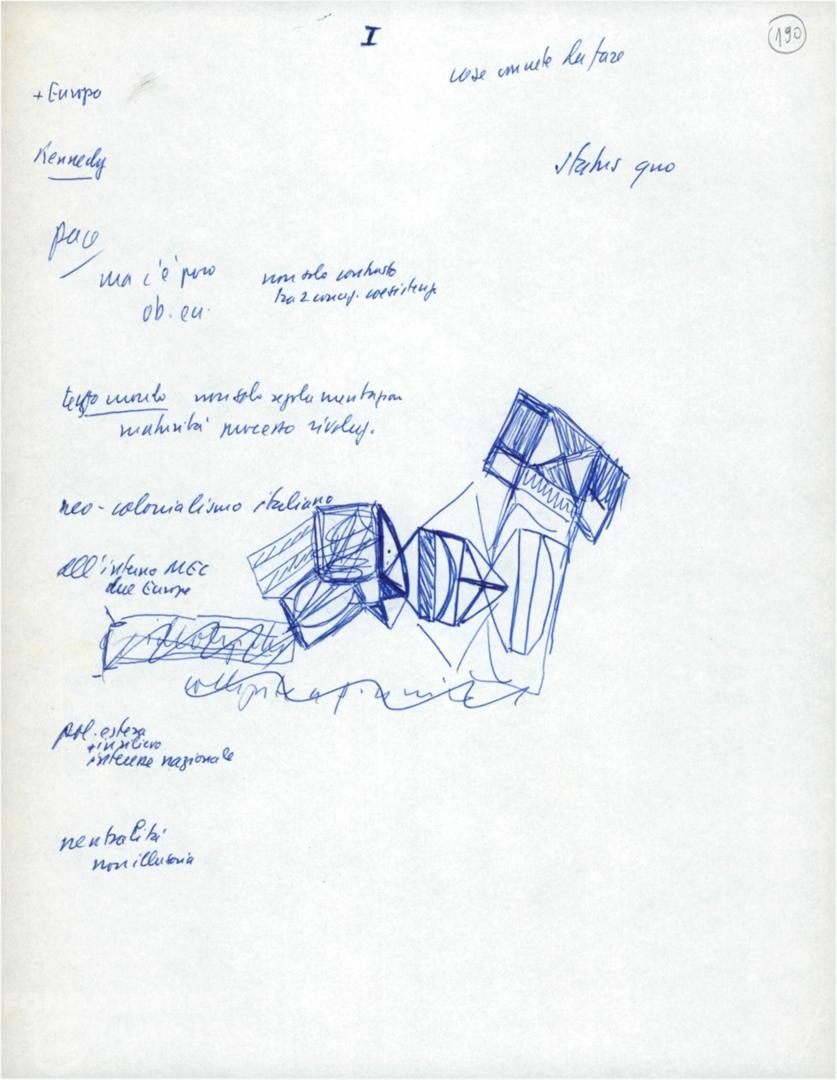 I
190
cose concrete da fare
+ Europa
Kennedy
status quo
pace
ma c'è però
non solo contrasto
tra 2 concez. coesistenza
ob. eu.
terzo mondo non solo regolamentazion
maturità processo rivoluz.
neo-colonialismo italiano
all'interno MEC
due Europe
pol. estera
+ in rilievo
interesse nazionale
neutralità
non illusoria